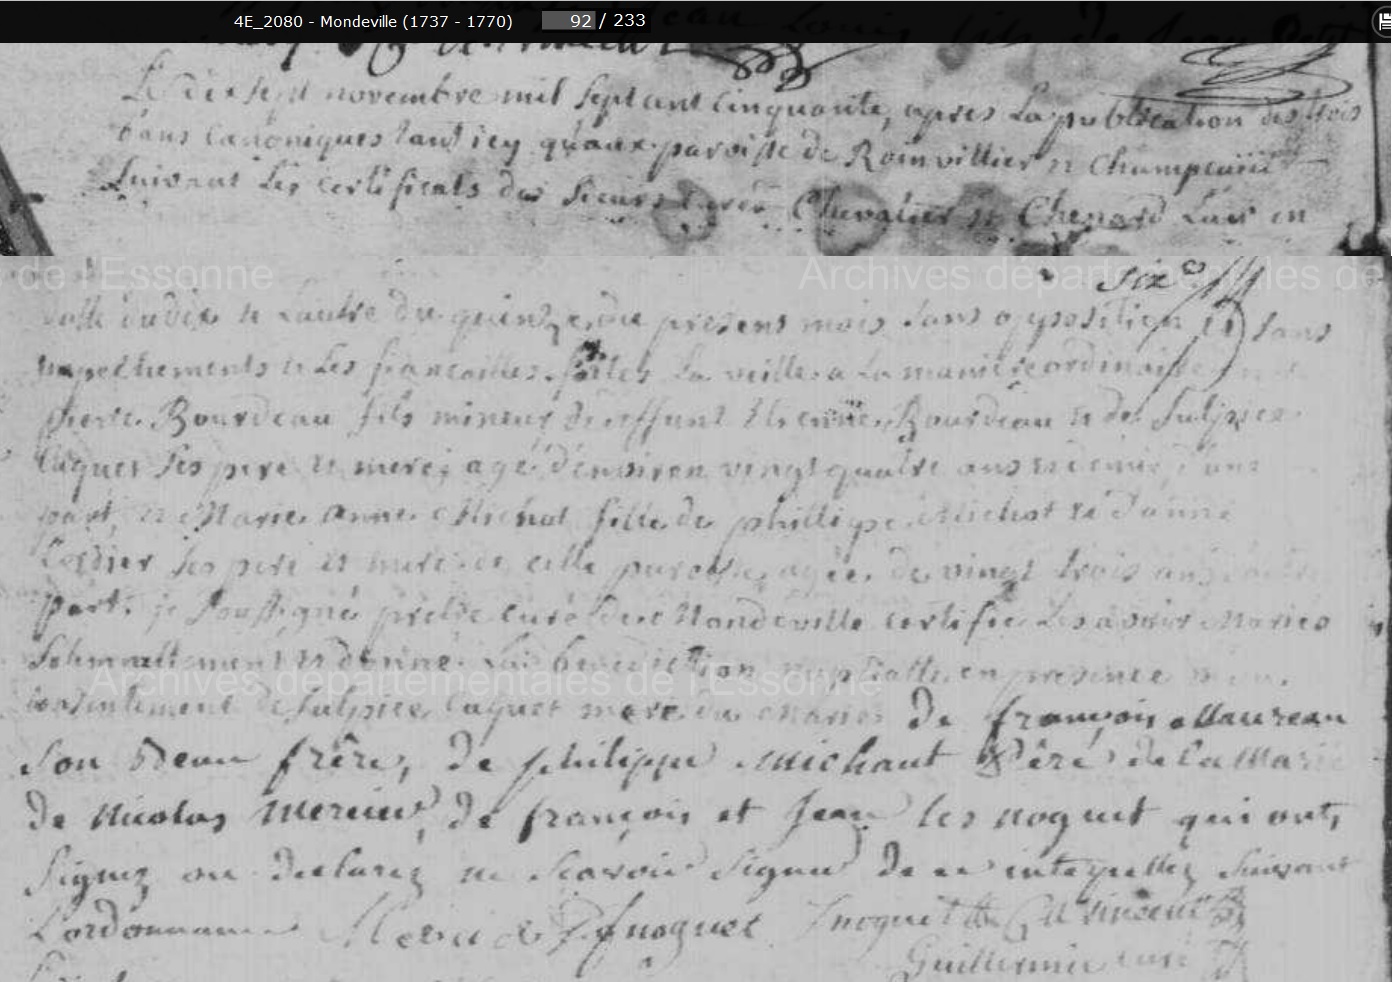 4E_2080 - Mondeville (1737 - 1770) 92 / 233
Le dix sept novembre mil sept cent cinquante, apres La publication des trois
bans canoniques tant icy qu'aux paroisse de Roinvillier et Champcueil
suivant Les certificats des sieurs curés Chevalier et Chenard L'un en
Archives départementales de l'Essonne
six
datte du dix et Lautre du quinze du present mois sans opposition et sans
empechements et Les fiancailles faites La veille a La maniere ordinaire
pierre Bourdeau fils mineur de deffunt Etienne Bourdeau et de Sulpice
Cuquet ses pere et mere, agé d'environ vingt quatre ans et demie, d'une
part, et Marie Anne Michot fille de phillippe Michot et d'anne
Cordier ses pere et mere de cette paroisse, agée de vingt trois ans
part. je soussigné prêtre curé de Mondeville certifie Les avoir Mariés
solemnellement et donné La benediction nuptialle en presence
consentement de Sulpice Cuquet mere du Marié de françois Maureau
son Beau frère, de philippe Michaut Père de la Marié
de Nicolas Mercier, de françois et Jean les noquet qui ont
signez ou declarez ne scavoir signer de ce interpellez suivant
L'ordonnance Mercier fnoquet Jnoquet
Guillermin curé
Archives départementales de l'Essonne